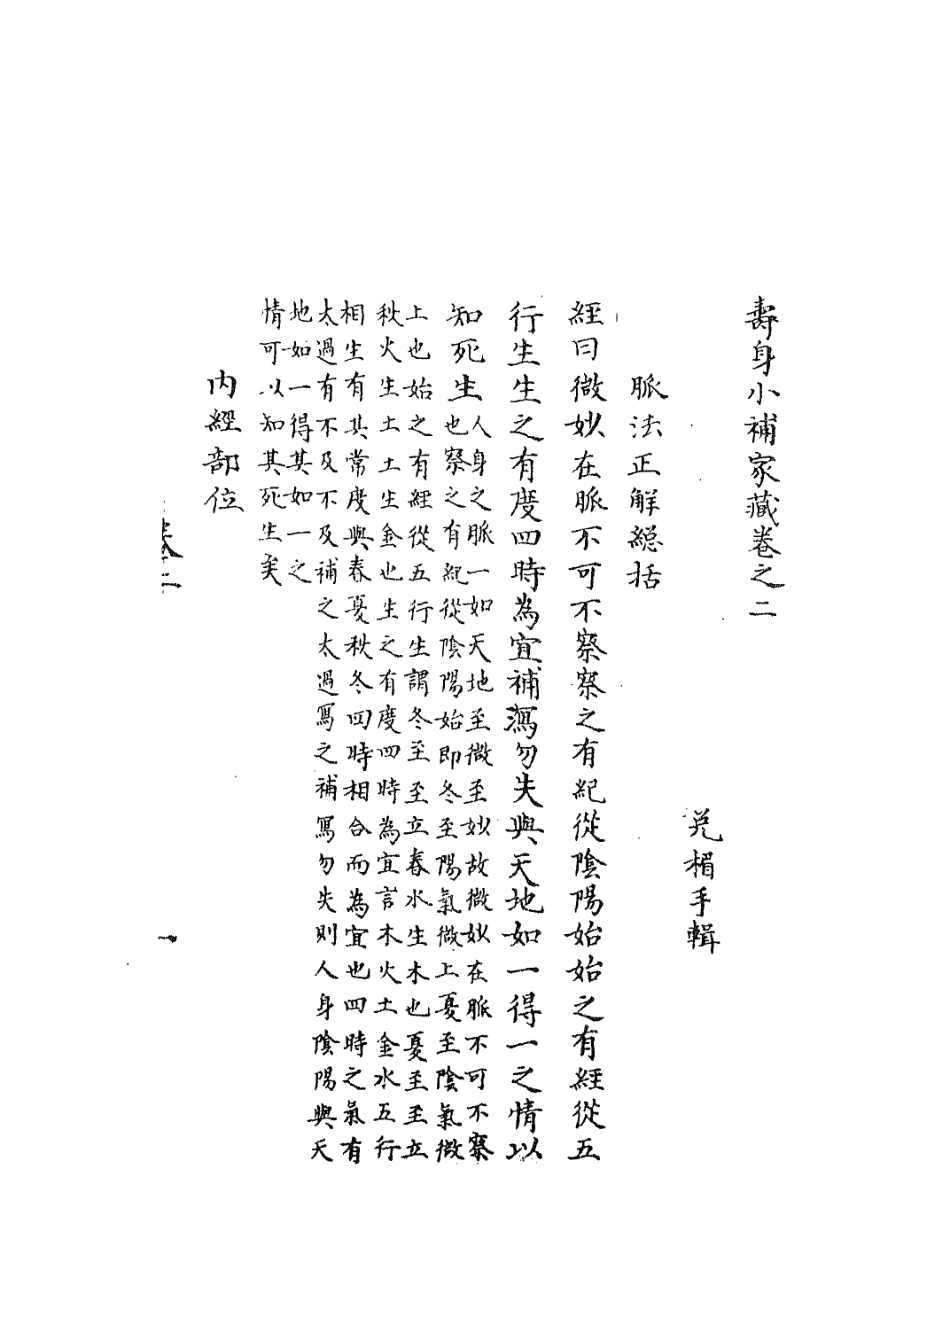 壽身小補家藏卷之二
兌楣手輯
脈法正解總括
經曰微妙在脈不可不察察之有紀從陰陽始始之有經從五
行生生之有度四時為宜補瀉勿失與天地如一得一之情以
知死生
人身之脈一如天地至微至妙故微妙在脈不可不察
也察之有紀從陰陽始即冬至陽氣微上夏至陰氣微
上也始之有經從五行生謂冬至至立春水生木也夏至至立
秋火生土土生金也生之有度四時為宜言木火土金水五行
相生有其常度與春夏秋冬四時相合而為宜也四時之氣有
太過有不及不及補之太過寫之補寫勿失則人身陰陽與天
地如一得其如一之
情可以知其死生矣
內經部位
卷二
一